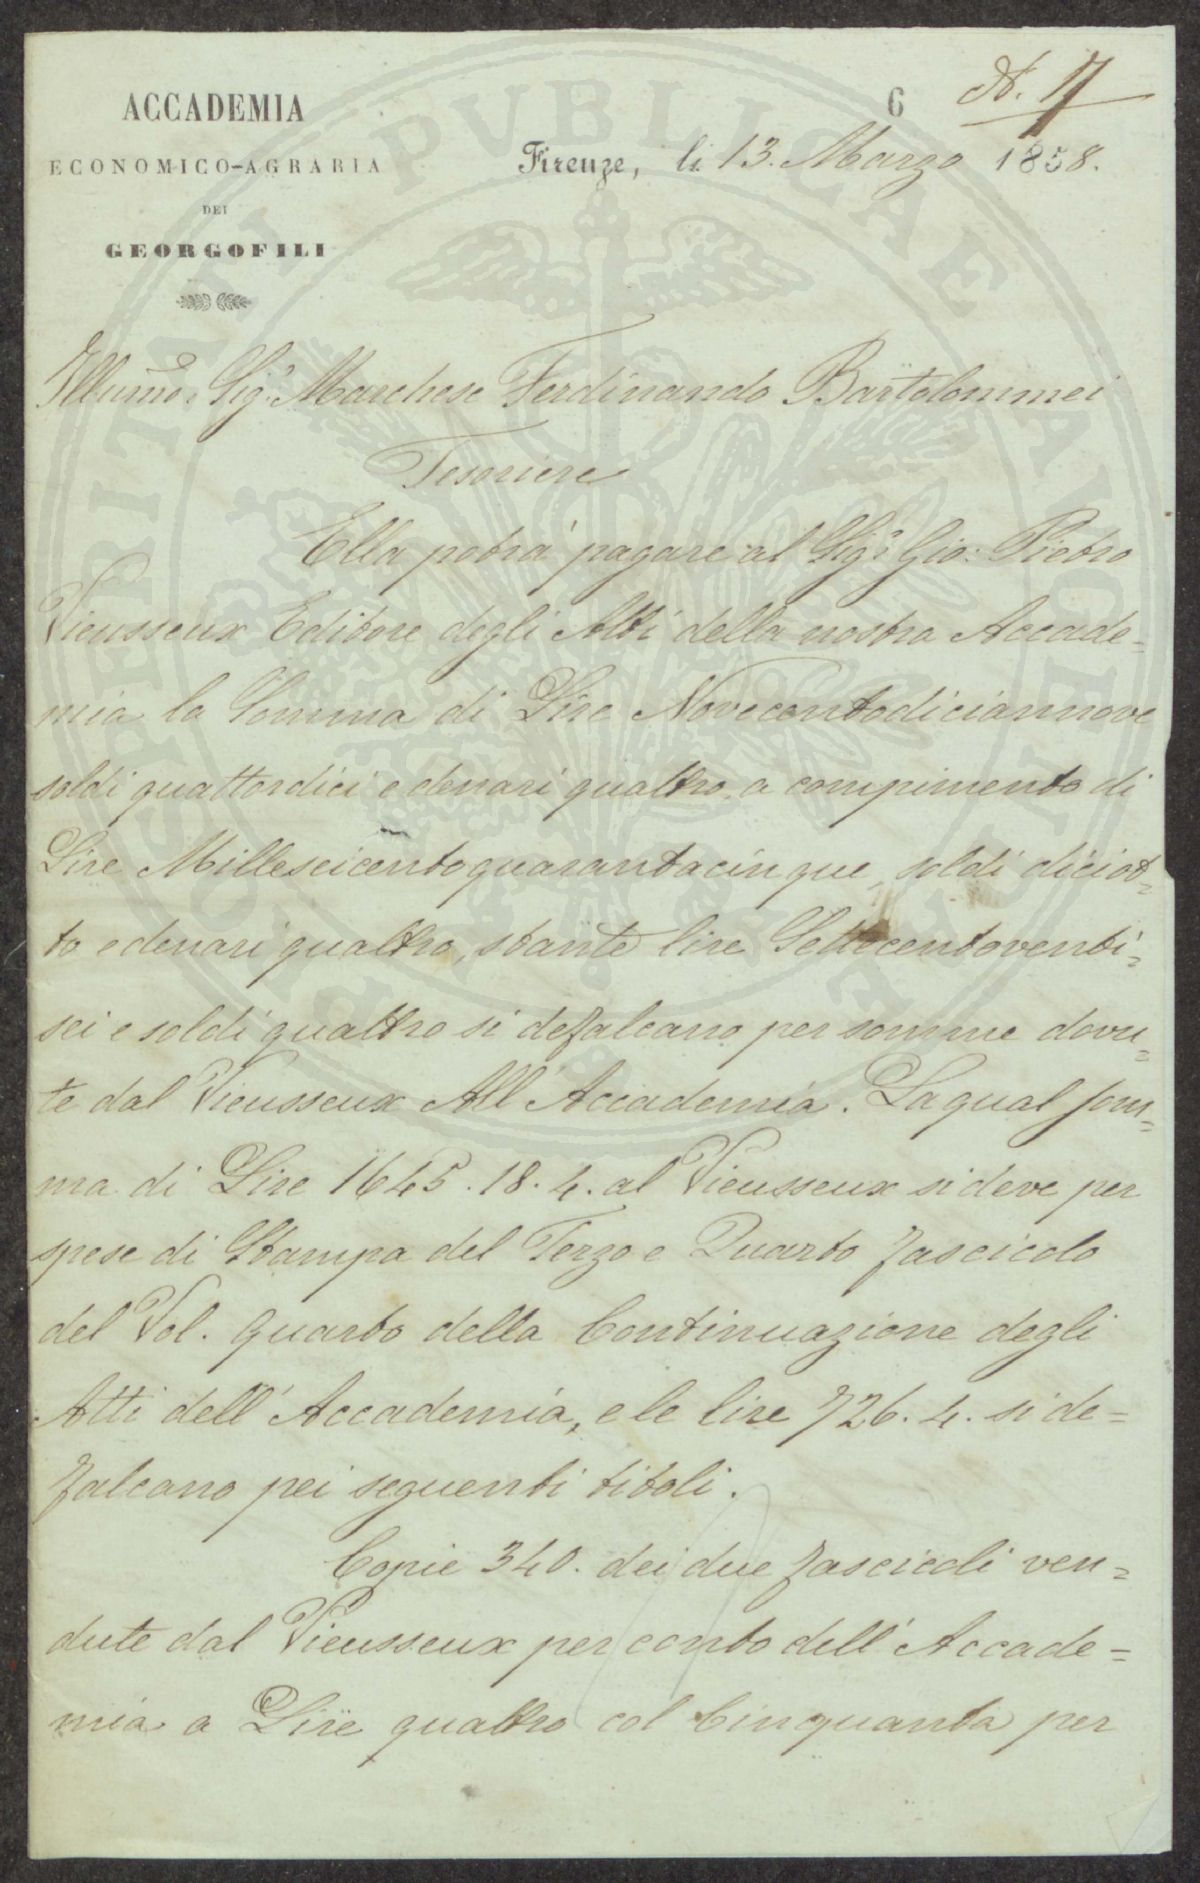 ACCADEMIA
ECONOMICO-AGRARIA
DEI
GEORGOFILI
6
N. 17
Firenze, li 13. Marzo 1858.
Illumo: Sigr. Marchese Ferdinando Bartolommei
Tesoriere
Ella potrà pagare al Sigr. Gio: Pietro
Vieusseux Editore degli Atti della nostra Accade=
mia la Somma di Lire Novecentodiciannove
soldi quattordici e denari quattro, a compimento di
Lire Milleseicentoquarantacinque, soldi diciot=
to e denari quattro, stante lire Settecentoventi=
sei e soldi quattro si defalcano per somme dovu=
te dal Vieusseux All'Accademia. La qual som=
ma di Lire 1645.18.4. al Vieusseux si deve per
spese di Stampa del Terzo e Quarto fascicolo
del Vol. quarto della Continuazione degli
Atti dell'Accademia, e le lire 726.4. si de=
falcano pei seguenti titoli.
Copie 340. dei due fascicoli ven=
dute dal Vieusseux per conto dell'Accade=
mia a Lire quattro col Cinquanta per
PVBLICAE
PROSPERITATI